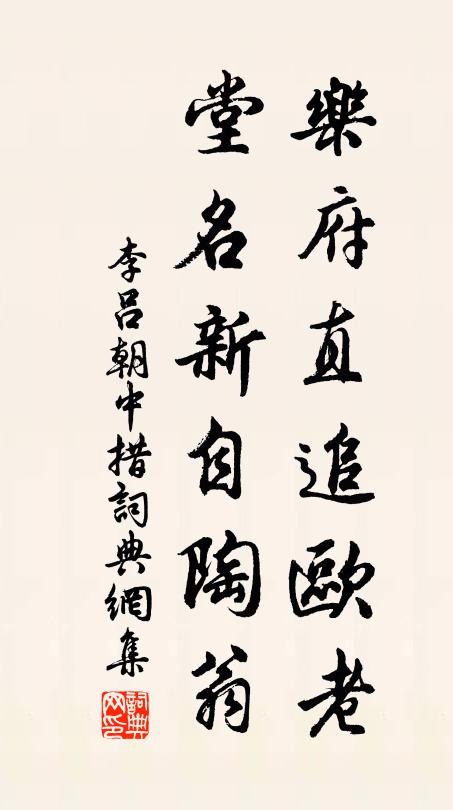 樂府直追歐老
堂名新自陶翁
李呂朝中措詞典網集
詞典網印